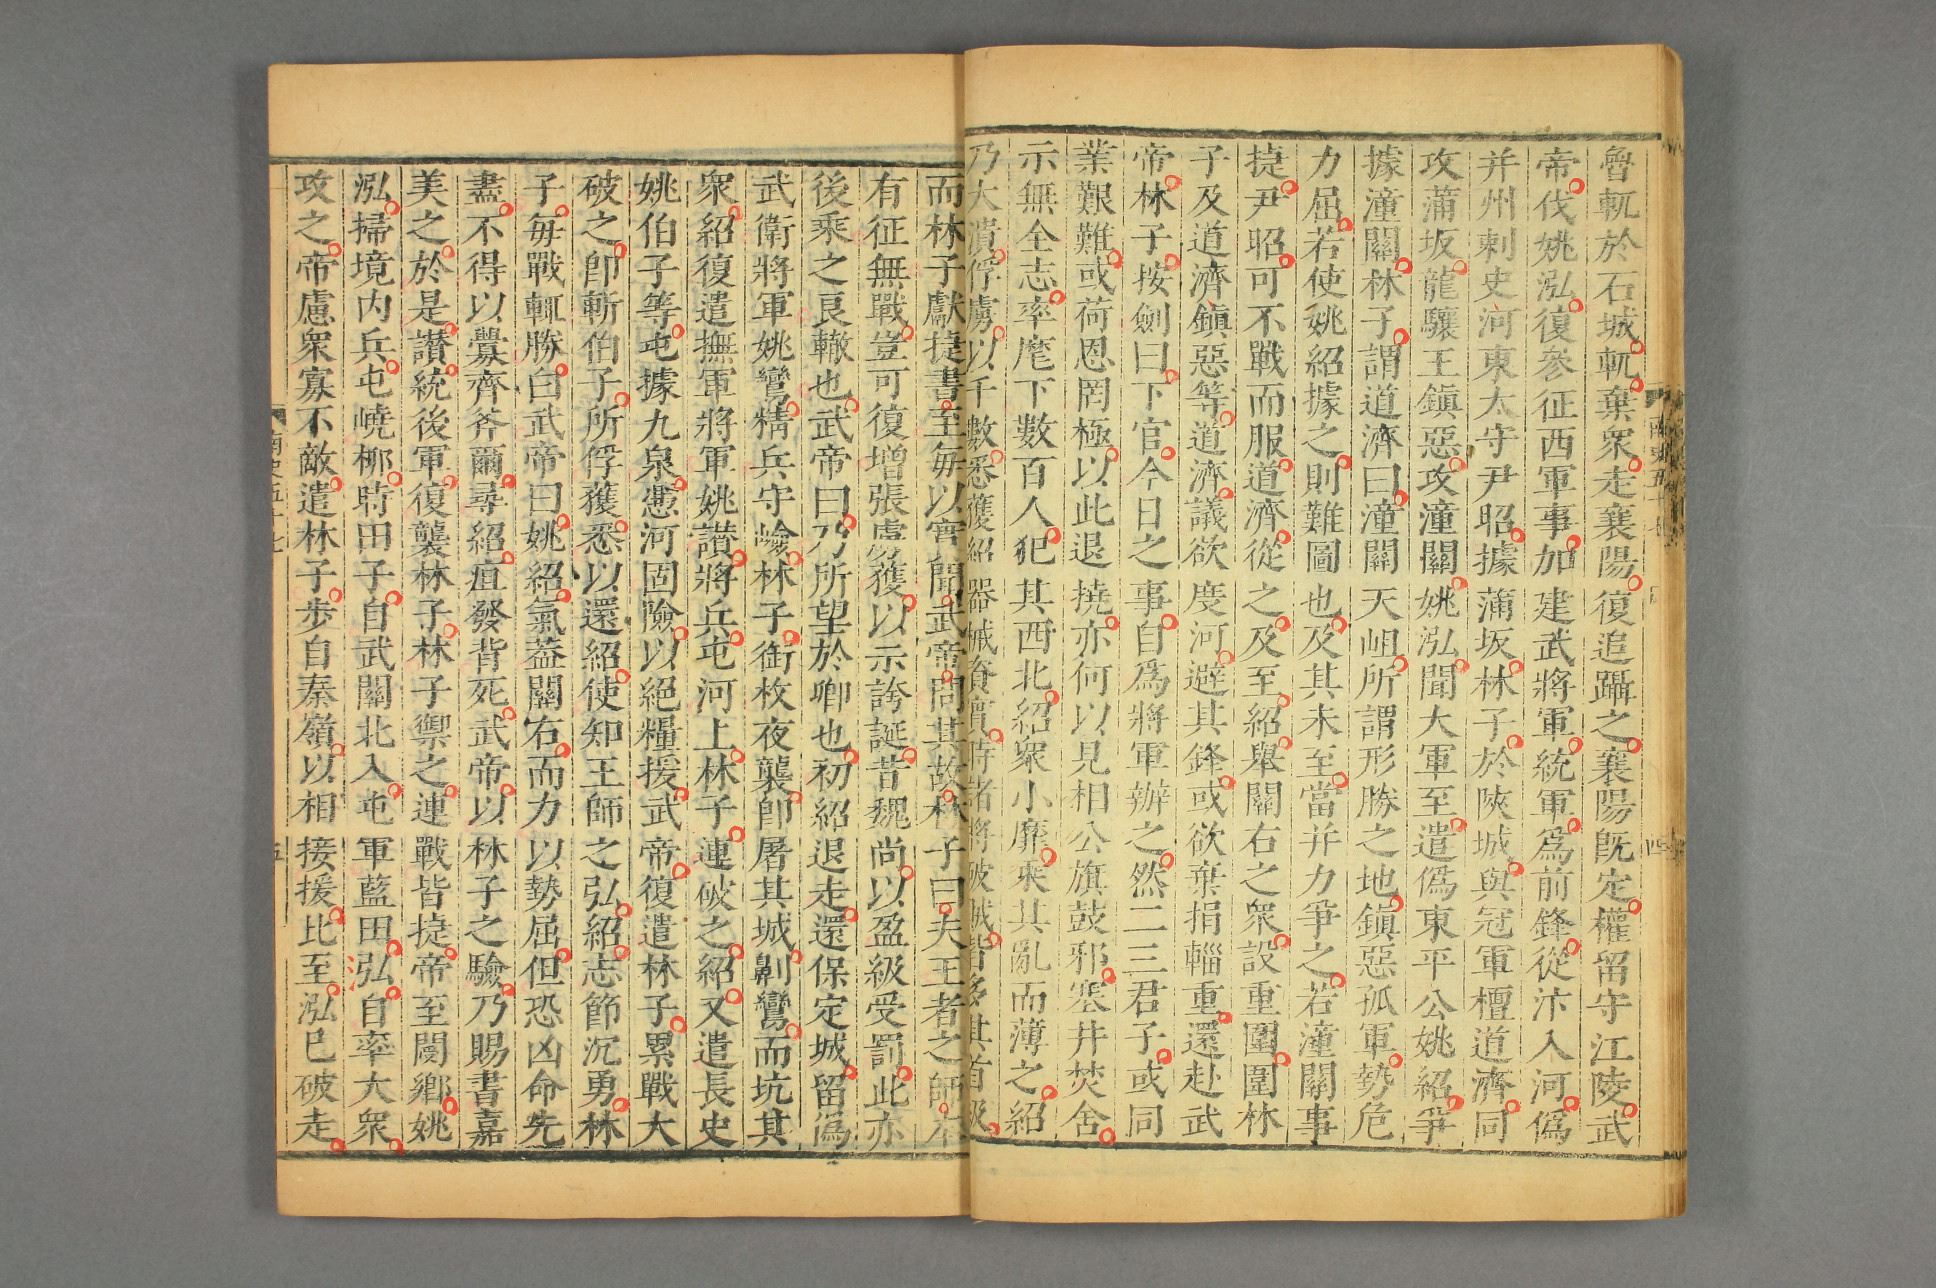 魯軌於石城軌棄衆走襄陽復追躡之襄陽旣定權留守江陵武
帝伐姚泓復參征西軍事加建武將軍統軍爲前鋒從汴入河爲
并州刺史河東太守尹昭據蒲坂林子於陝城與冠軍檀道濟同
攻蒲坂龍驤王鎮惡攻潼關姚泓聞大軍至遣僞東平公姚紹爭
據潼關林子謂道濟曰潼關天岨所謂形勝之地鎮惡孤軍勢危
力屈若使姚紹據之則難圖也及其未至當并力爭之若潼關事
捷尹昭可不戰而服道濟從之及至紹舉關右之衆設重圍圍林
子及道濟鎮惡等道濟議欲度河避其鋒或欲棄捐輜重還赴武
帝林子按劍曰下官今日之事自爲將軍辦之然二三君子或同
業艱難或荷恩罔極以此退撓亦何以見相公旗鼓邪塞井焚舍
示無全志率麾下數百人犯其西北紹衆小靡乘其亂而薄之紹
乃大潰俘虜以千數悉獲紹器械資實時諸將破賊皆多其首級
而林子獻捷書至每以實聞武帝問其故林子曰夫王者之師本
有征無戰豈可復增張虜獲以示誇誕昔魏尚以盈級受罰此亦
後乘之良轍也武帝曰乃所望於卿也初紹退走還保定城留僞
武衛將軍姚鸞精兵守嶮林子銜枚夜襲卽屠其城劓鸞而坑其
衆紹復遣撫軍將軍姚讃將兵屯河上林子連破之紹又遣長史
姚伯子等屯據九泉憑河固險以絕糧援武帝復遣林子累戰大
破之卽斬伯子所俘獲悉以還紹使知王師之弘紹志節沉勇林
子每戰輒勝白武帝曰姚紹氣葢關右而力以勢屈但恐凶命先
盡不得以釁齊斧爾尋紹疽發背死武帝以林子之驗乃賜書嘉
美之於是讃統後軍復襲林子林子禦之連戰皆捷帝至閿鄉姚
泓掃境内兵屯嶢栁時田子自武關北入屯軍藍田弘自率大衆
攻之帝慮衆寡不敵遣林子步自秦嶺以相接援比至泓已破走